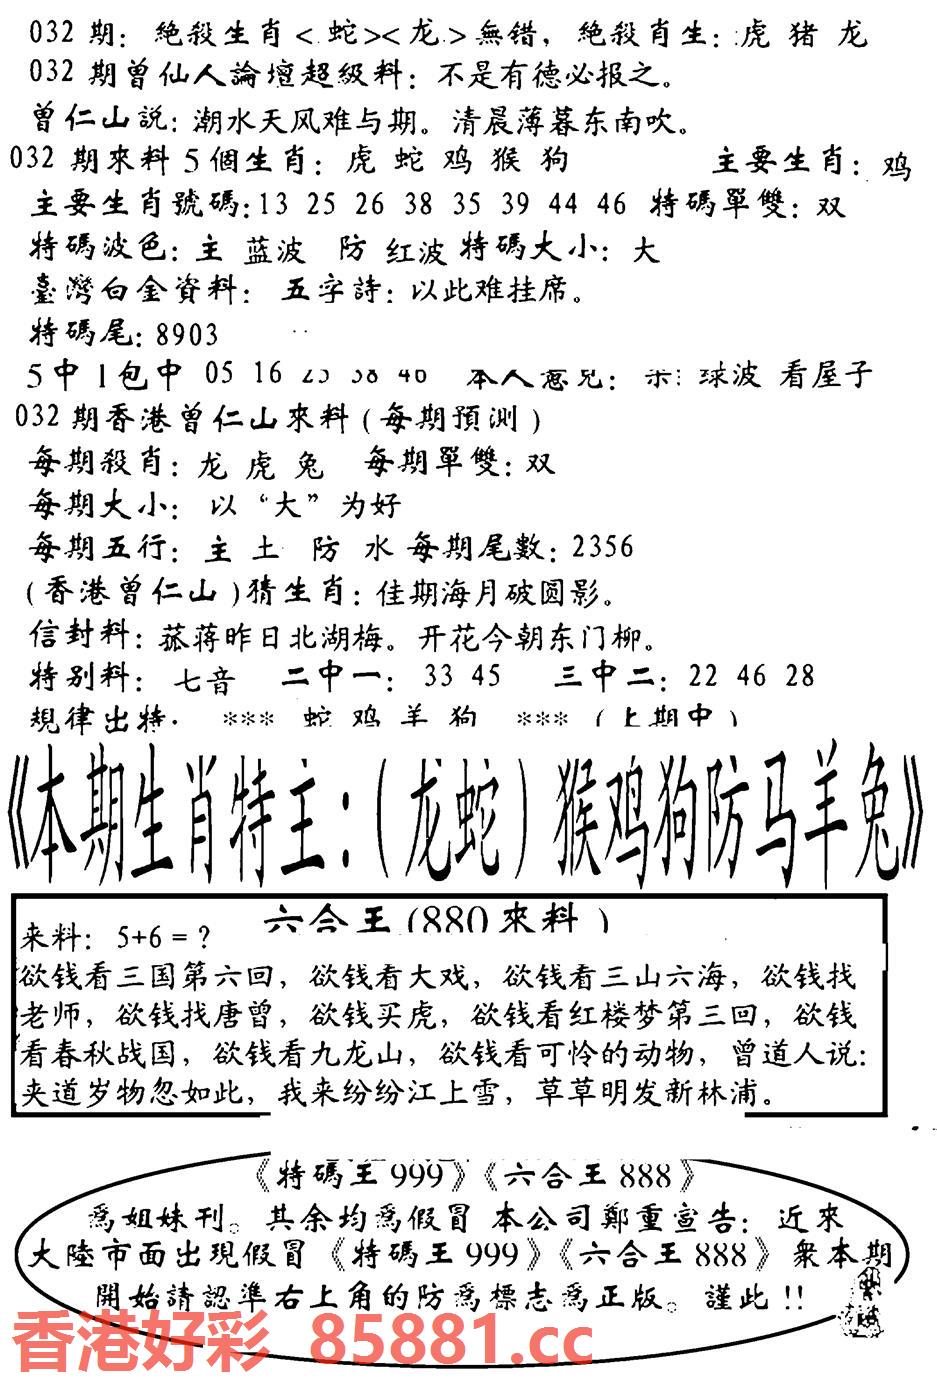 032 期：絶殺生肖<蛇><龙>無错，絶殺肖生：虎 猪 龙
032 期曾仙人論壇超級料：不是有德必报之。
曾仁山説：潮水天风难与期。清晨薄暮东南吹。
032 期來料 5 個生肖：虎 蛇 鸡 猴 狗 主要生肖：鸡
主要生肖號碼：13 25 26 38 35 39 44 46 特碼單雙：双
特碼波色：主 蓝波 防 红波 特碼大小：大
臺灣白金資料：五字詩：以此难挂席。
特碼尾：8903
5 中 1 包中 05 16 25 38 46 本人意見： 球波 看屋子
032 期香港曾仁山來料（每期預測）
每期殺肖：龙 虎 兔 每期單雙：双
每期大小：以“大”为好
每期五行：主 土 防 水 每期尾數：2356
（香港曾仁山）猜生肖：佳期海月破圆影。
信封料：菰蒋昨日北湖梅。开花今朝东门柳。
特别料：七音 二中一：33 45 三中二：22 46 28
規律出特： *** 蛇 鸡 羊 狗 *** （上期中）
《本期生肖特主：（龙蛇）猴鸡狗防马羊兔》
六合王（880來料）
来料：5+6=？
欲钱看三国第六回，欲钱看大戏，欲钱看三山六海，欲钱找
老师，欲钱找唐曾，欲钱买虎，欲钱看红楼梦第三回，欲钱
看春秋战国，欲钱看九龙山，欲钱看可怜的动物，曾道人说：
夹道岁物忽如此，我来纷纷江上雪，草草明发新林浦。
《特碼王 999》《六合王 888》
爲姐妹刊。其余均爲假冒 本公司鄭重宣告：近來
大陸市面出現假冒《特碼王 999》《六合王 888》衆本期
開始請認準右上角的防爲標志爲正版。謹此 !!
香港好彩 85881.cc